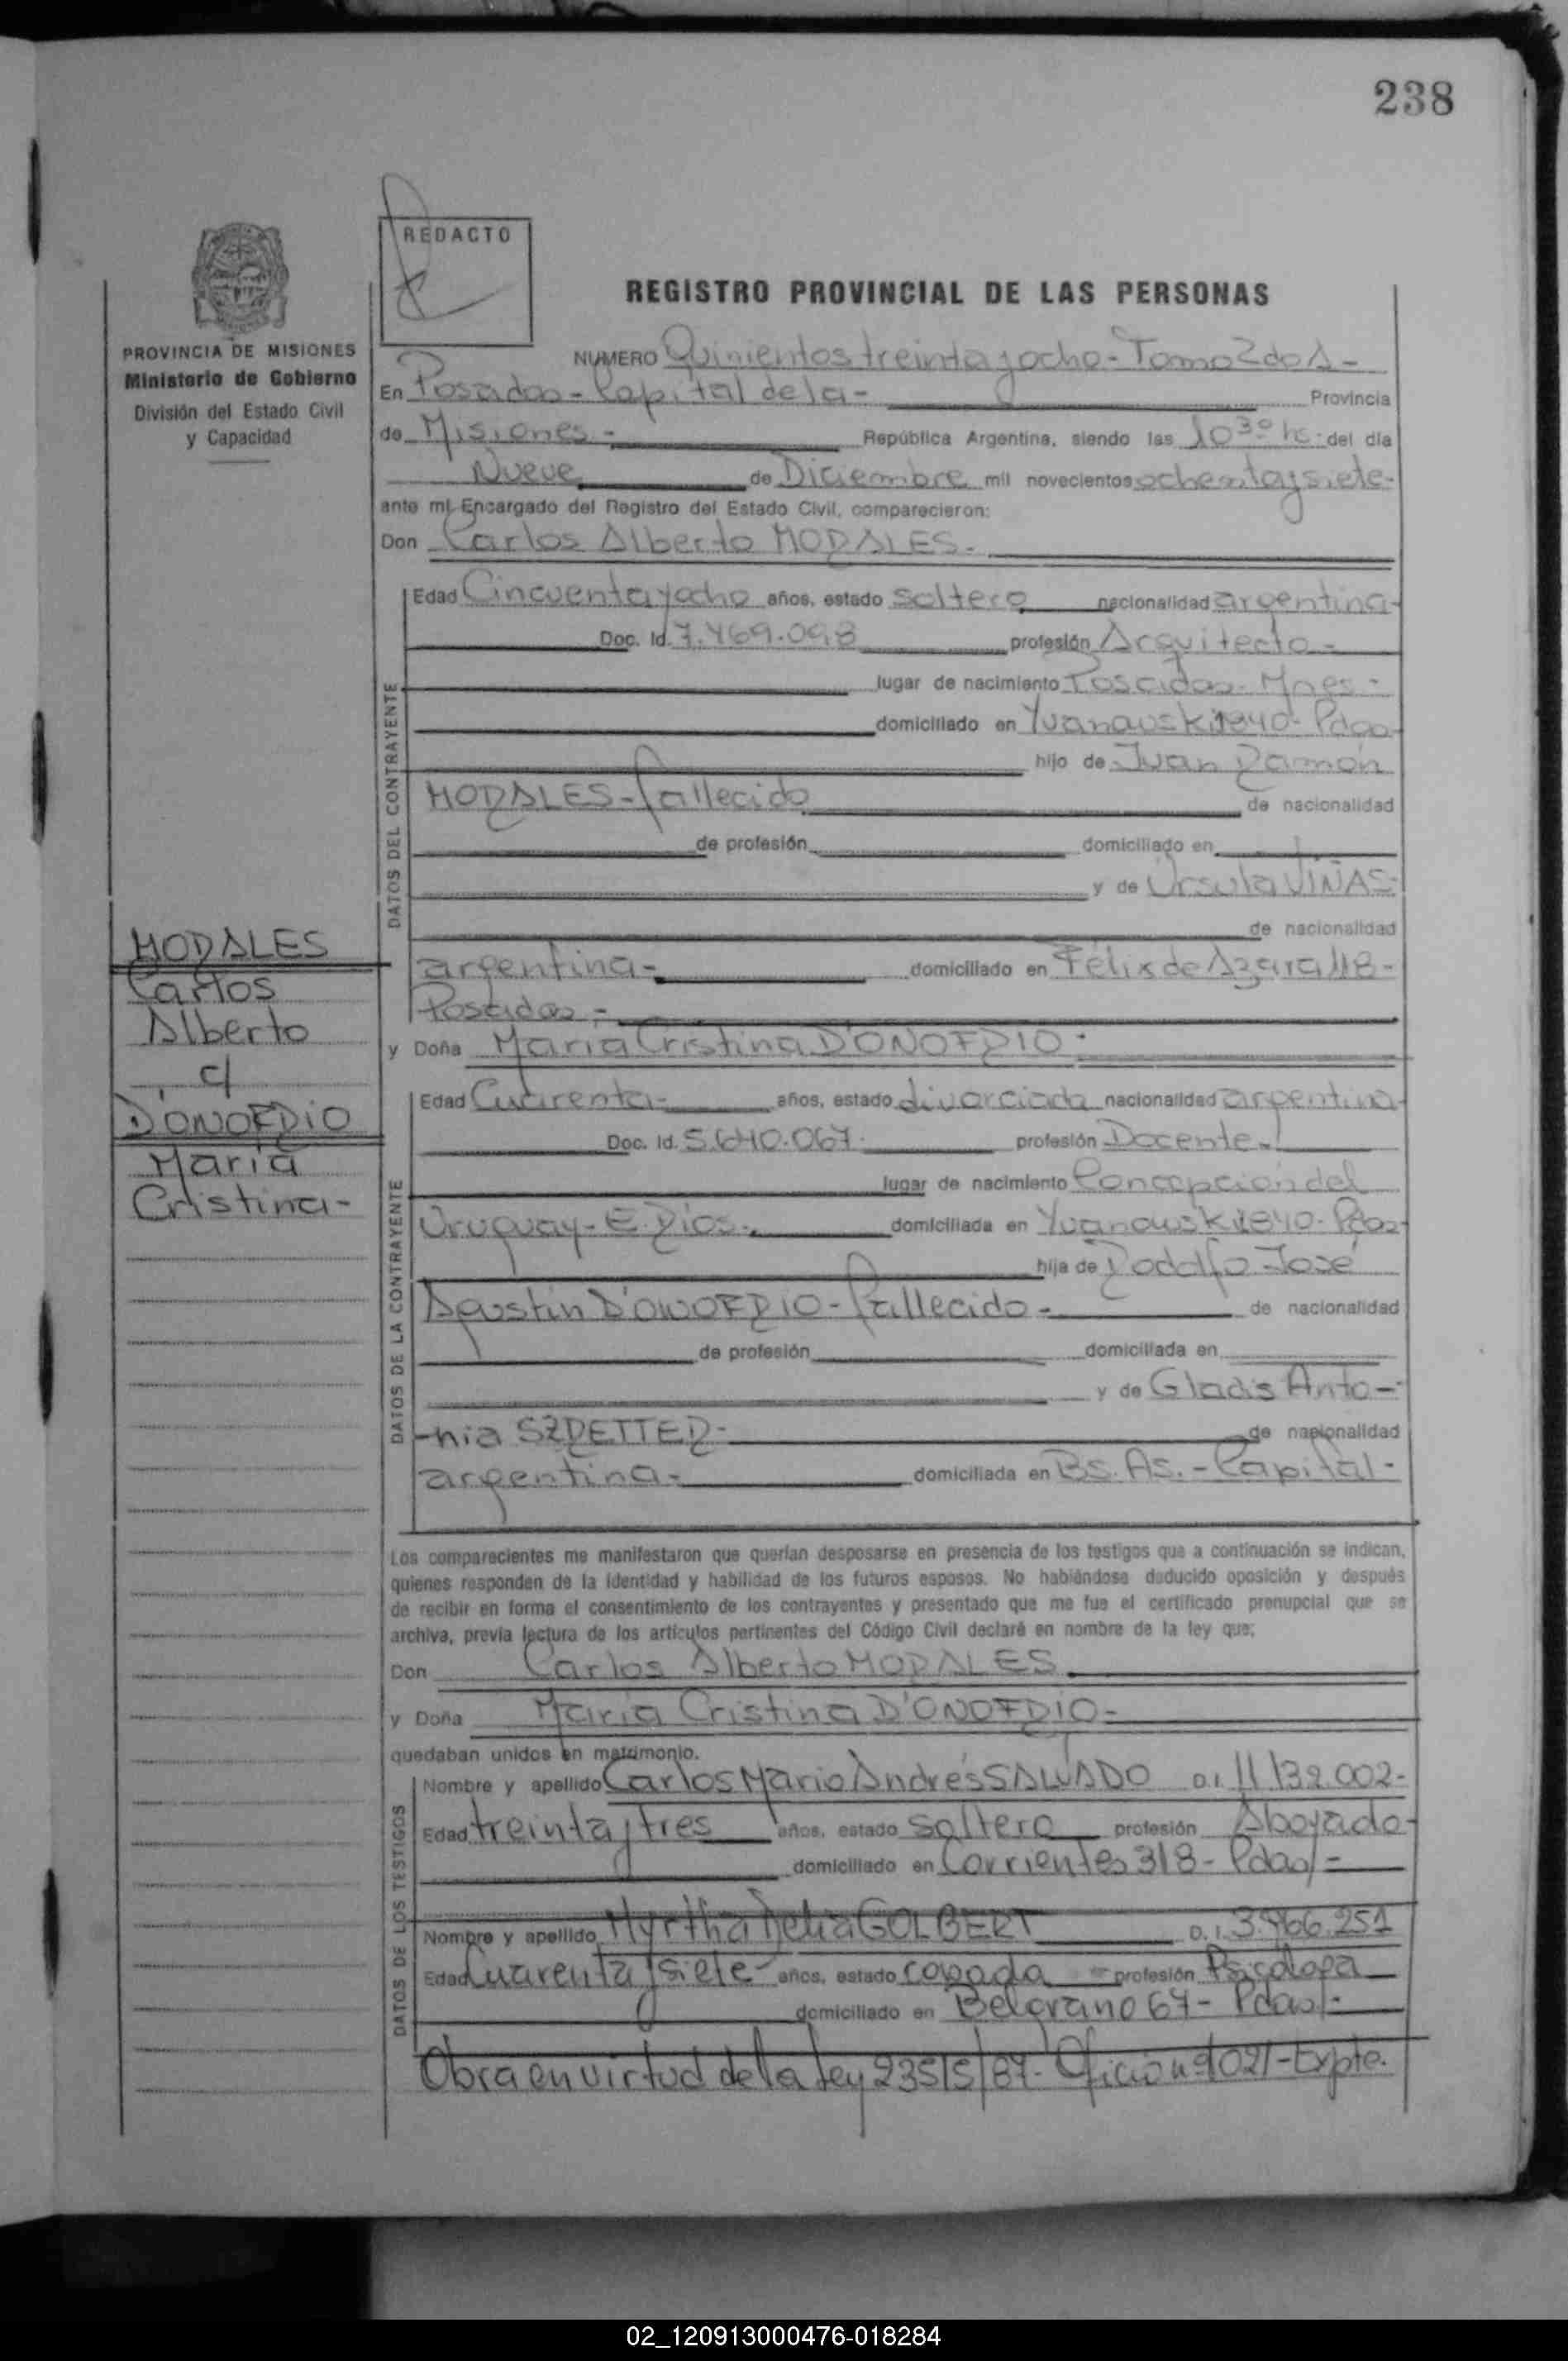 238
REDACTO
REGISTRO PROVINCIAL DE LAS PERSONAS
PROVINCIA DE MISIONES
Ministerio de Gobierno
División del Estado Civil
y Capacidad
NUMERO Quinientos treinta y ocho - Tomo 2do A -
En Posadas - Capital de la - Provincia
de Misiones - República Argentina, siendo las 10 30 hs. del día
Nueve de Diciembre mil novecientos ochenta y siete -
ante mí Encargado del Registro del Estado Civil, comparecieron:
Don Carlos Alberto MORALES -
DATOS DEL CONTRAYENTE
Edad Cincuenta y ocho años, estado soltero nacionalidad argentina -
Doc. Id. 7.469.098 profesión Arquitecto -
lugar de nacimiento Posadas - Mnes -
domiciliado en Yvanauski 1840 - Pdas -
hijo de Juan Ramón
MORALES - fallecido de nacionalidad
de profesión domiciliado en
y de Ursula VIÑAS -
de nacionalidad
argentina - domiciliado en Félix de Azara 118 -
Posadas -
MORALES
Carlos
Alberto
c/
D'ONOFRIO
María
Cristina -
y Doña María Cristina D'ONOFRIO -
DATOS DE LA CONTRAYENTE
Edad Cuarenta - años, estado divorciada nacionalidad argentina -
Doc. Id. 5.640.067 - profesión Docente -
lugar de nacimiento Concepción del
Uruguay - E. Ríos - domiciliada en Yvanowski 1840 - Pdas -
hija de Rodolfo José
Agustín D'ONOFRIO - fallecido - de nacionalidad
de profesión domiciliada en
y de Gladis Anto -
- nia SZRETTER - de nacionalidad
argentina - domiciliada en Bs. As. - Capital -
Los comparecientes me manifestaron que querían desposarse en presencia de los testigos que a continuación se indican,
quienes responden de la identidad y habilidad de los futuros esposos. No habiéndose deducido oposición y después
de recibir en forma el consentimiento de los contrayentes y presentado que me fue el certificado prenupcial que se
archiva, previa lectura de los artículos pertinentes del Código Civil declaré en nombre de la ley que;
Don Carlos Alberto MORALES
y Doña María Cristina D'ONOFRIO -
quedaban unidos en matrimonio.
DATOS DE LOS TESTIGOS
Nombre y apellido Carlos Mario Andrés SALVADO D.I. 11 132.002 -
Edad treinta y tres años, estado soltero profesión Abogado -
domiciliado en Corrientes 318 - Pdas/ -
Nombre y apellido Myrtha Delia GOLBERT D.I. 3.966.251
Edad Cuarenta y siete - años, estado casada - profesión Psicóloga
domiciliado en Belgrano 67 - Pdas/ -
Obra en virtud de la Ley 23515/87 - Oficio nº 1021 - Expte.
02_120913000476-018284